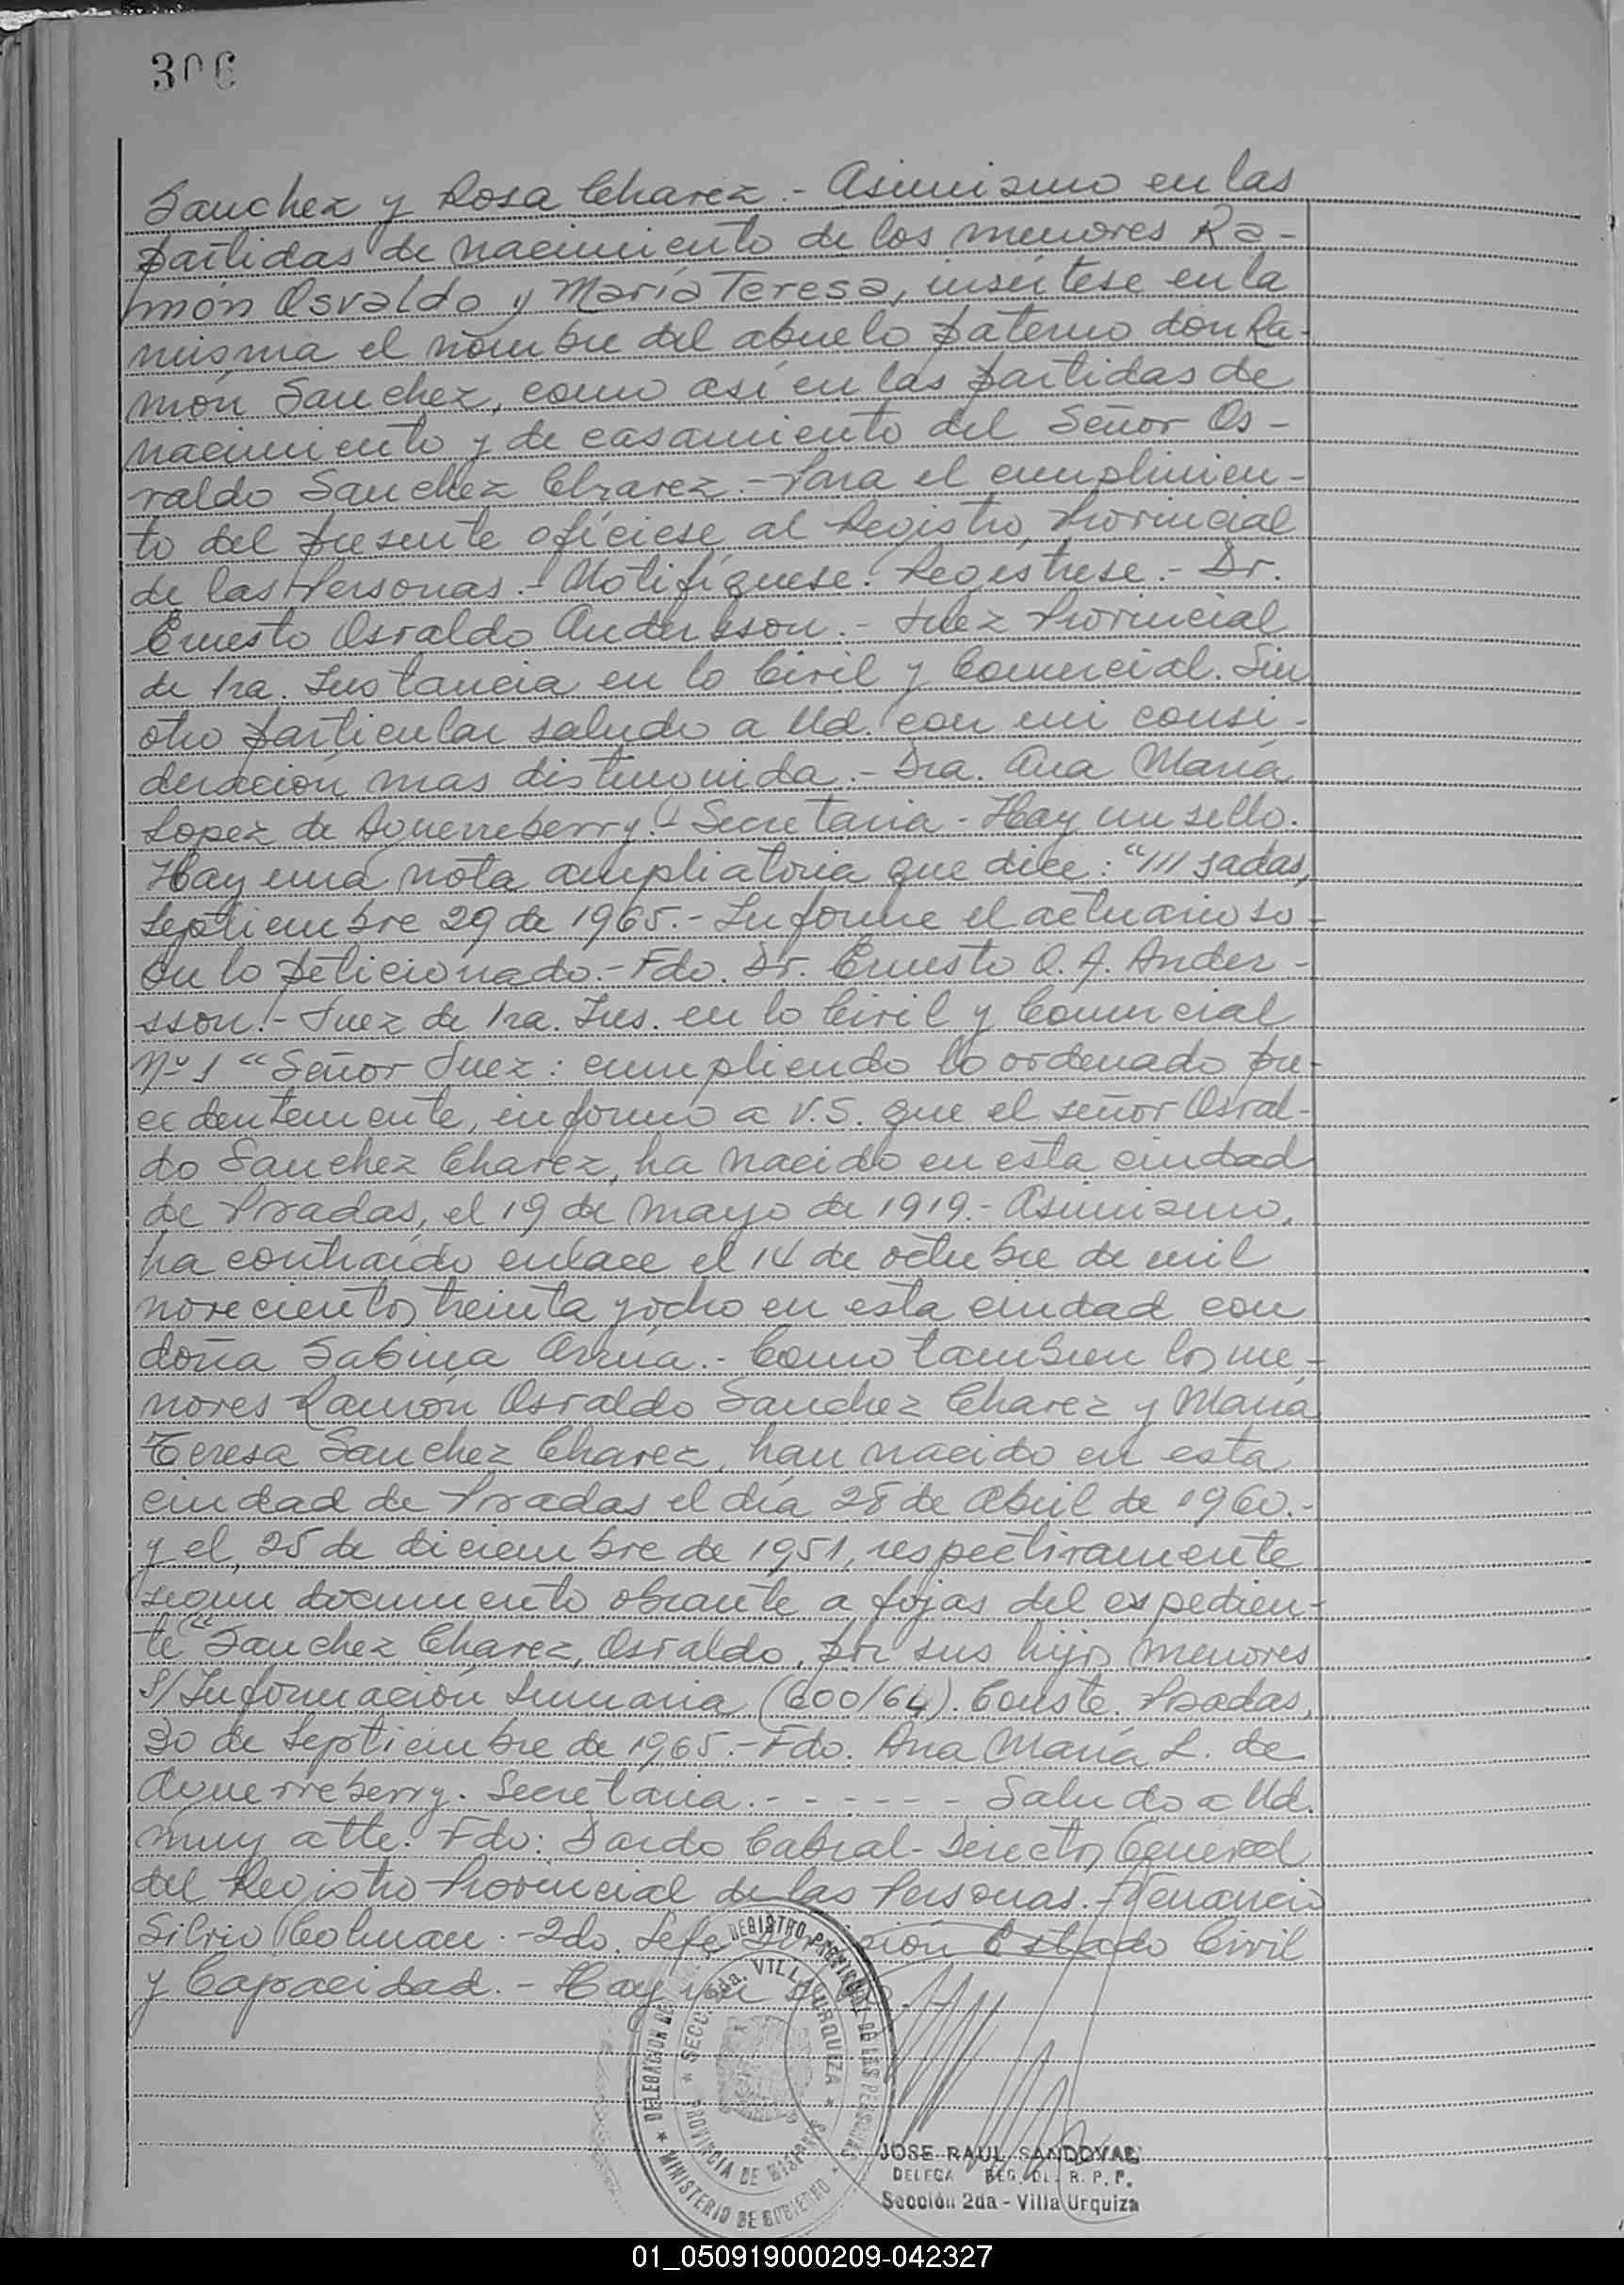 306
Sanchez y Rosa Chavez.- Asimismo en las
partidas de nacimiento de los menores Ra-
món Osvaldo y María Teresa, insértese en la
misma el nombre del abuelo paterno don Ra-
món Sanchez, como así en las partidas de
nacimiento y de casamiento del Señor Os-
valdo Sanchez Chavez.- Para el cumplimien-
to del presente ofíciese al Registro Provincial
de las Personas.- Notifíquese. Regístrese.- Dr.
Ernesto Osvaldo Andersson.- Juez Provincial
de 1ra. Instancia en lo Civil y Comercial. Sin
otro particular saludo a Ud. con mi consi-
deración mas distinguida.- Dra. Ana María
Lopez de Aguerreberry.- Secretaria - Hay un sello.
Hay una nota ampliatoria que dice: "///sadas,
septiembre 29 de 1965.- Informe el actuario so-
en lo peticionado.- Fdo. Dr. Ernesto O. A. Ander-
sson.- Juez de 1ra. Ins. en lo Civil y Comercial
Nº 1 "Señor Juez: cumpliendo lo ordenado pre-
cedentemente, informo a V.S. que el señor Osval-
do Sanchez Chavez, ha nacido en esta ciudad
de Posadas, el 19 de mayo de 1919.- Asimismo,
ha contraído enlace el 14 de octubre de mil
novecientos treinta y ocho en esta ciudad con
doña Sabina .- Como tambien los me-
nores Ramón Osvaldo Sanchez Chavez y María
Teresa Sanchez Chavez, han nacido en esta
ciudad de Posadas el día 28 de Abril de 1960.-
y el 25 de diciembre de 1951, respectivamente
segun documento obrante a fojas del expedien-
te "Sanchez Chavez, Osvaldo, por sus hijos menores
S/Información Sumaria (600/64). Conste. Posadas,
30 de Septiembre de 1965.- Fdo. Ana María L. de
Aguerreberry. Secretaria.- - - - - - Saludo a Ud.
muy atte. Fdo: Dardo Cabral - Director General
del Registro Provincial de las Personas.- Venancio
Silvio Colman.- 2do. Jefe División Estado Civil
y Capacidad.- Hay un sello.-
DELEGACION DEL REGISTRO PROVINCIAL DE LAS PERSONAS
SECC. 2da. VILLA URQUIZA
PROVINCIA DE MISIONES
MINISTERIO DE GOBIERNO
JOSE RAUL SANDOVAL
DELEGA REG. DE R. P. P.
Sección 2da - Villa Urquiza
01_050919000209-042327